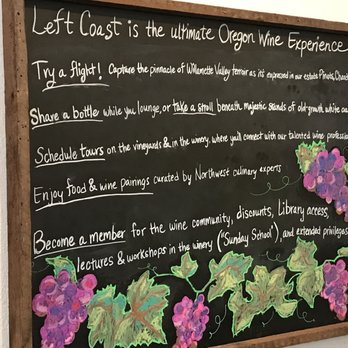 Left Coast is the ultimate Oregon Wine Experience
Try a flight! Capture the pinnacle of Willamette Valley terroir as its expressed in our estate Pinots,
Share a bottle while you lounge, or take a stroll beneath majestic stands of old-growth white
Schedule tours on the vineyards & in the winery, where you'll connect with our talented wine
Enjoy food & wine pairings curated by Northwest culinary experts
Become a member for the wine community, discounts, Library access,
lectures & workshops in the winery ("Sunday School"), and extended privileges